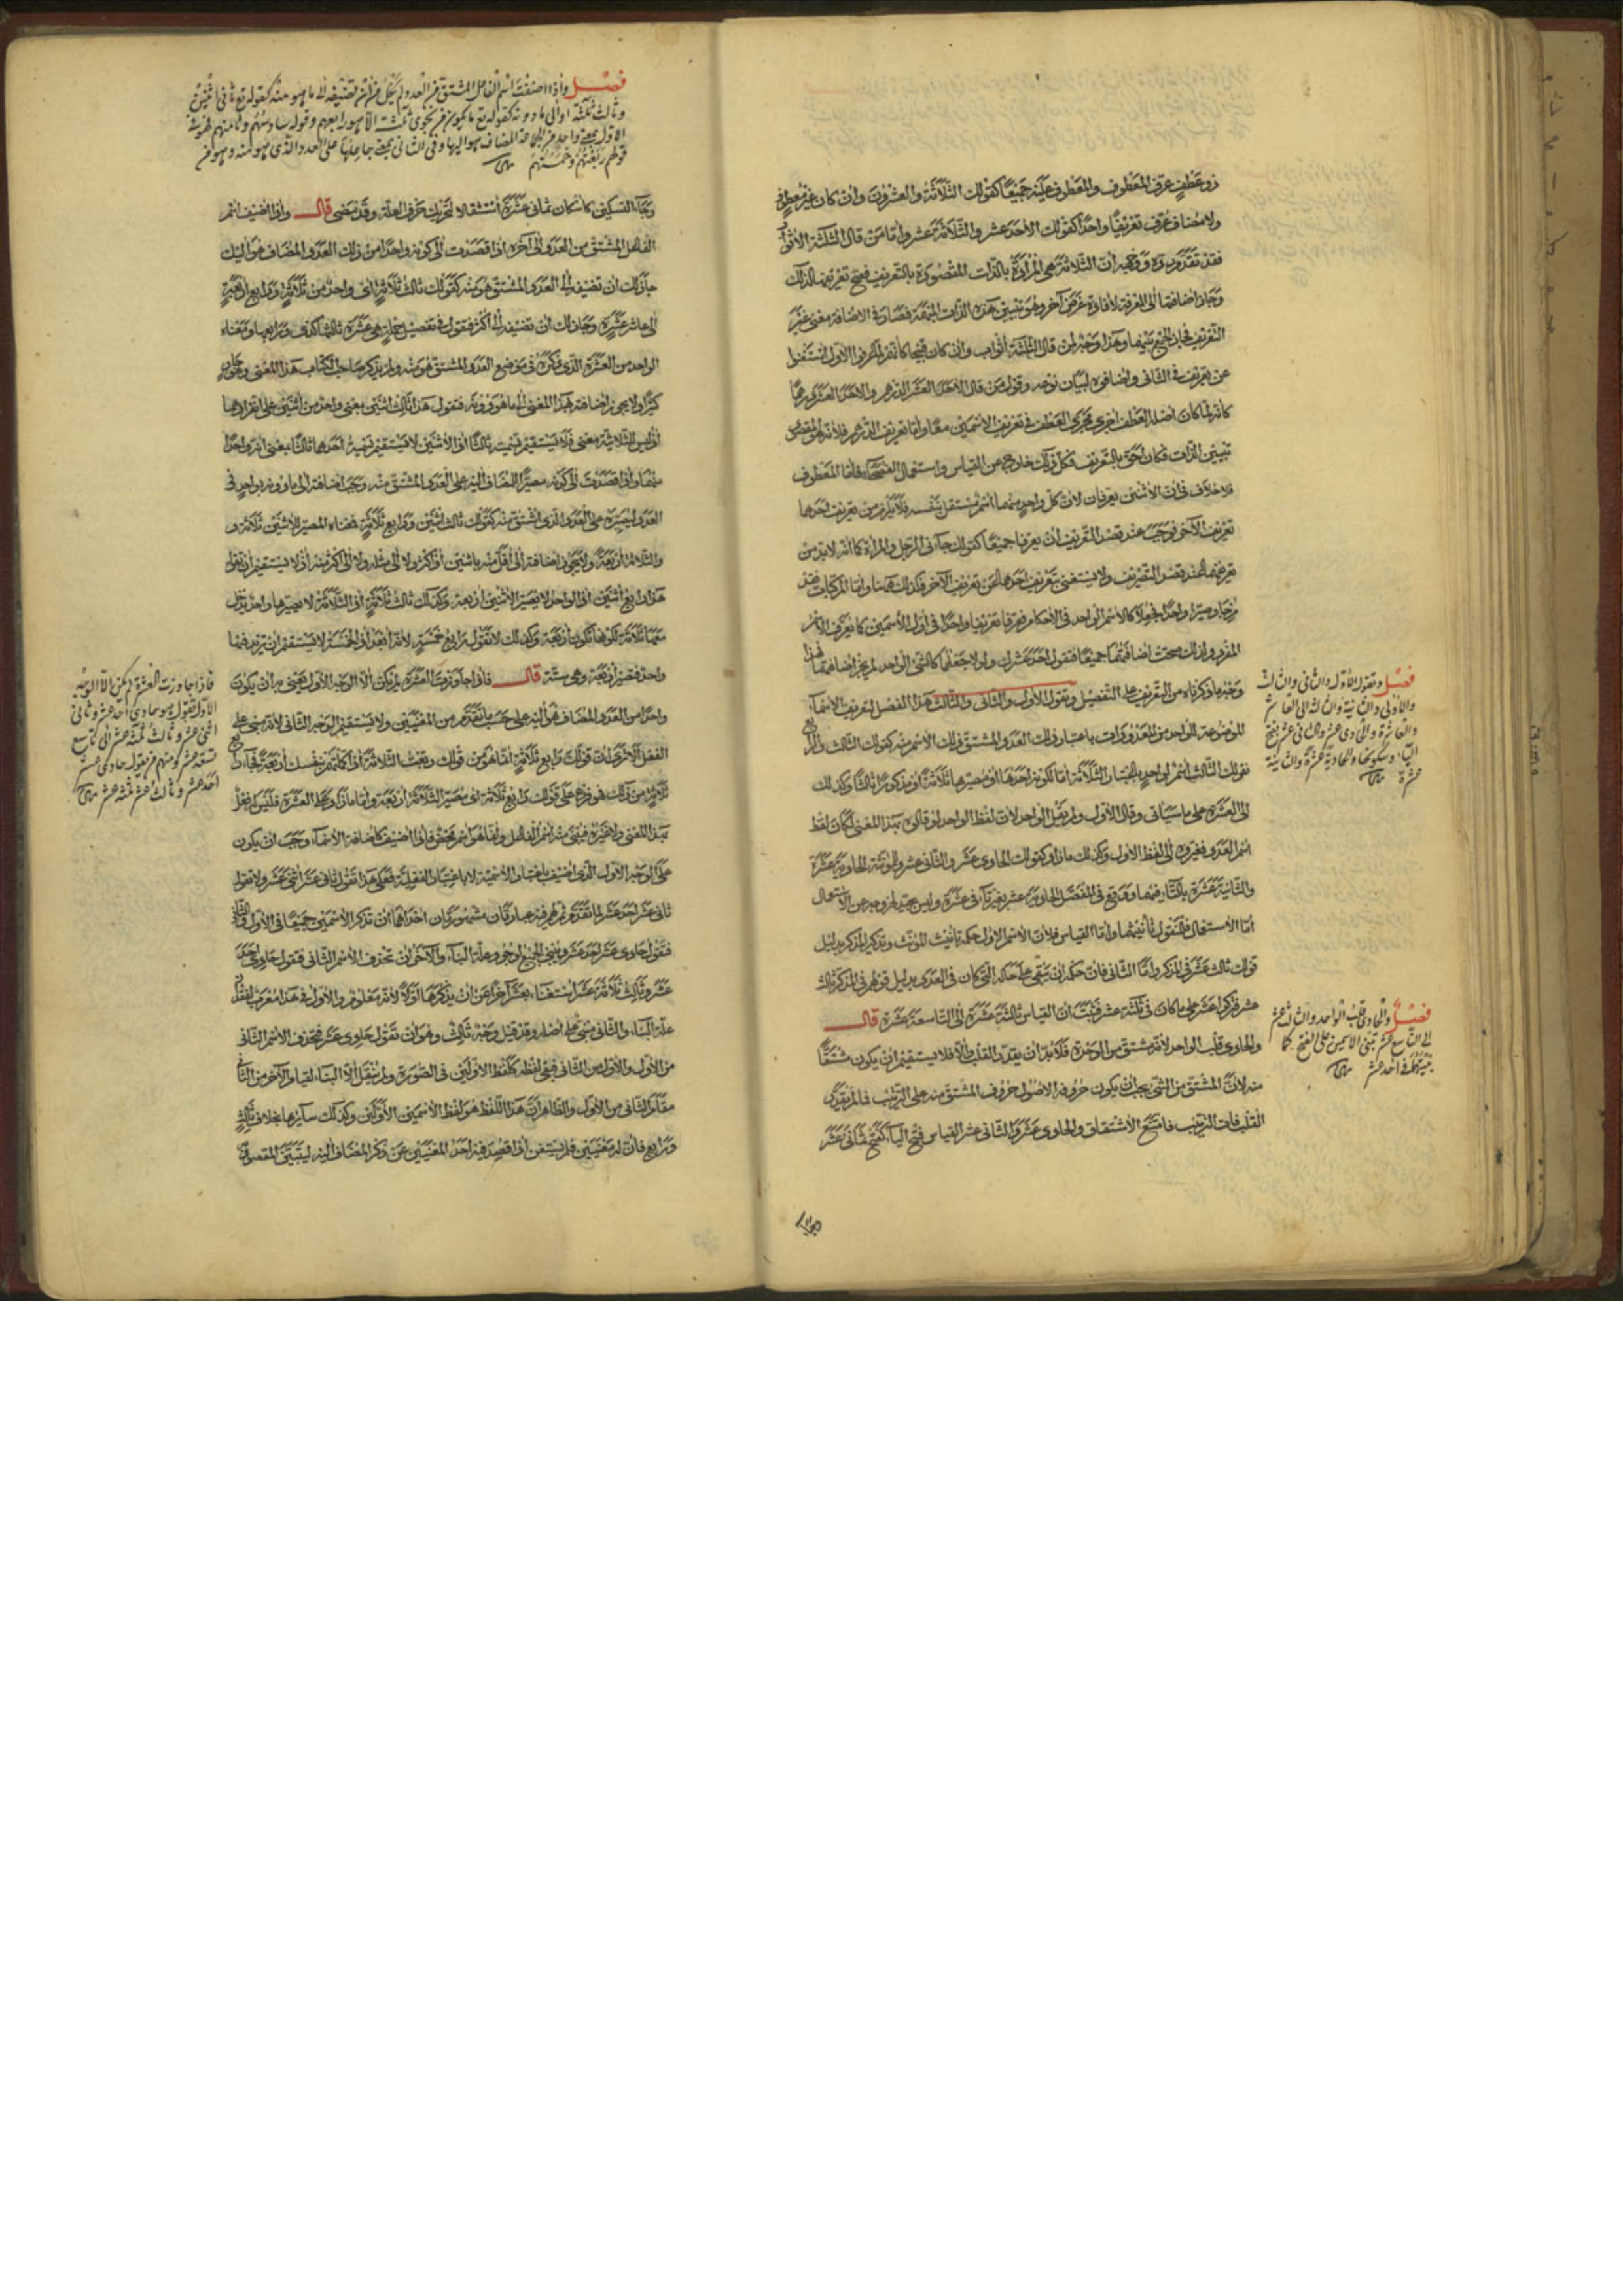 ذو عطف عرف المعطوف والمعطوف عليه جميعًا كقولك الثلاثة والعشرون وان كان غير معطوف
ولا مضاف عرف تعريفًا واحدًا كقولك الاحد عشر والثلاثة عشر واما من قال الثلثة الاثواب
فقد تقدم ووجهه ان الثلاثة هي المرادة بالذات المقصودة بالتعريف فصح تعريفها لذلك
وجاز اضافتها الى المعرفة لافادة غرض آخر وهو تبيين هذه الذات المبهمة فصار في الاضافة معنى غير
التعريف فجاز الجمع بينهما وهذا وجه من قال الثلثة اثواب وان كان قبيحا كانهم لما عرفوا الاول استغنوا
عن تعريف الثاني واضافوه لبيان نوعه وقول من قال الاحد العشر الدرهم والاحد العشر درهما
كانه لما كان اصله العطف اجري مجرى العطف في تعريف الاسمين معا واما تعريف الدرهم فلانه المقصود
تبيين الذات فكان احق بالتعريف فكل ذلك خارج عن القياس واستعمال الفصحاء فاما المعطوف
فلا خلاف في ان الاثنين يعرفان لان كل واحد منهما اسم مستقل بنفسه فلا يلزم من تعريف احدهما
تعريف الآخر فوجب عند قصد التعريف ان يعرفا جميعا كقولك جاءني الرجل والمرأة كما انه لا بد من
تعريفهما عند قصد التعريف ولا يستغنى بتعريف احدهما عن تعريف الآخر فكذلك ههنا واما المركبات فقد
مزجا وصيرا واحدا فجعلا كالاسم الواحد في الاحكام فعرفا تعريفا واحدا في اول الاسمين كما يعرف الاسم
المفرد ولذلك صحت اضافتهما جميعا فتقول احد عشرك ولولا جعلهما كالشيء الواحد لم يجز اضافتهما فهذا
وجه ما ذكرناه من التعريف على التفصيل وتقول الاول والثاني والثالث هذا الفصل لتعريف الاسماء
الموضوعة للواحد من المعدودات باعتبار ذلك العدد المشتق ذلك الاسم منه كقولك الثالث والرابع
فقولك الثالث اسم لواحد باعتبار الثلاثة اما لكونه احدها او مصيرها ثلاثة او مذكورا ثالثا وكذلك
الى العشرة على ما سيأتي وقال الاول ولم يقل الواحد لان لفظ الواحد لو قالوه بهذا المعنى لكان لفظ
اسم العدد فغيروه الى لفظ الاول وكذلك ما زاد كقولك الحادي عشر والثاني عشر وللمؤنثة الحادية عشرة
والثانية عشرة بالتاء فيهما ووقع في المفصل الحادية عشر بغير تاء في عشرة وليس بجيد لخروجه عن الاستعمال
اما الاستعمال فلقول تأنيثهما واما القياس فلان الاسم الاول حكمه تأنيث المؤنث وتذكير المذكر بدليل
قولك ثالث عشر في المذكر واما الثاني فان حكمه ان يبقى على حاله التي كان في العدد بدليل قولهم في المذكر ثالث
عشر فذكروا عشر على ما كان في ثلثة عشر فثبت ان القياس ثالثة عشرة الى التاسعة عشرة قال
والحادي قلب الواحد لانه مشتق من الوحدة فلا بد ان يقدر القلب والا فلا يستقيم ان يكون مشتقًا
منه لان المشتق من الشيء يجب ان يكون حروفه الاصول حروف المشتق منه على الترتيب فما لم يقدر
القلب فات الترتيب فامتنع الاشتقاق والحادي عشر والثاني عشر القياس فتح الياء كفتح ثماني عشر
فصل وتقول الاول والثاني والثالث
والاولى والثانية والثالثة الى العاشر
والعاشرة والحادي عشر والثاني عشر بفتح
الياء وسكونها والحادية عشرة والثانية
عشرة
فصل والحادي قلب الواحد والثالث عشر
الى التاسع عشر تبني الاسمين على الفتح كما
بنيتهما في احد عشر
فصل واذا اضفت اسم الفاعل المشتق من العدد لم يخل من ان تضيفه الى ما هو منه كقوله تع ثاني اثنين
وثالث ثلثة او الى ما دونه كقوله تع ما يكون من نجوى ثلثة الا هو رابعهم وقوله سادسهم وثامنهم فهو في
الاول بمعنى واحد من الجماعة المضاف هو اليها وفي الثاني بمعنى جاعلها على العدد الذي هو منه وهو من
قولهم ربعتهم وخمستهم
وجاء التسكين كاسكان ثماني عشرة استثقالا لتحريك حرف العلة وقد مضى قال واذا اضيف اسم
الفاعل المشتق من العدد الى آخره اذا قصدت الى كونه واحدا من ذلك العدد المضاف هو اليك
جاز لك ان تضيفه الى العدد المشتق هو منه كقولك ثالث ثلاثة اي واحد من ثلاثة ورابع اربعة
الى عاشر عشرة وجاز لك ان تضيفه الى اكثر فتقول في تفصيل جملة هي عشرة ثالثها كذا ورابعها ومعناه
الواحد من العشرة الذي ذكره في موضع العدد المشتق هو منه ولم يذكر صاحب الكتاب هذا المعنى وجوازه
كثير ولا يجوز اضافته بهذا المعنى الى ما هو دونه فتقول هذا ثالث اثنين بمعنى واحد من اثنين على انفرادهما
اذ ليس للثلاثة معنى فلا يستقيم تسميته ثالثا اذ الاثنين لا يستقيم تسمية احدهما ثالثا بمعنى انه واحد
منهما واذا قصدت الى كونه مصيرا للمضاف اليه على العدد المشتق منه وجب اضافته الى ما دونه بواحد في
العدد ليصيره على العدد الذي اشتق منه كقولك ثالث اثنين ورابع ثلاثة فمعناه المصير للاثنين ثلاثة و
والثلاثة اربعة ولا يجوز اضافته الى اقل منه باثنين او اكثر ولا الى مثله ولا الى اكثر منه اذ لا يستقيم ان تقول
هذا رابع اثنين اذ الواحد لا يصير الاثنين اربعة وكذلك ثالث ثلاثة اذ الثلاثة لا يصيرها واحد يدخل
معها ثلاثة لكونها تكون اربعة وكذلك لا تقول رابع خمسة لانه ابعد اذ الخمسة لا يستقيم ان تزيد فيها
واحد فتصير اربعة وهي ستة قال فاذا جاوزت العشرة لم يكن الا الوجه الاول يعني من ان يكون
واحدا من العدد المضاف هو اليه على حسب ما تقدم من المعنيين ولا يستقيم الوجه الثاني لانه مبني على
الفعل الا ترى ان قولك رابع ثلاثة انما هو من قولك ربعت الثلاثة اذا كملتهم بنفسك اربعة فجاء رابع
ثلاثة من ذلك فهو فرع على قولك رابع ثلاثة اي مصير الثلاثة اربعة واما ما زاد على العشرة فليس له فعل
بهذا المعنى ولا غيره فيبنى منه اسم الفاعل وانما هو اسم محض فاذا اضيف كاضافة الاسماء وجب ان يكون
على الوجه الاول الذي اضيف باعتبار الاسمية لا باعتبار الفعلية فعلى هذا تقول ثاني عشر اثني عشر ولا تقول
ثاني عشر احد عشر لما تقدم ثم لهم فيه عبارتان مشهورتان احداهما ان تذكر الاسمين جميعا في الاول والثاني
فتقول حادي عشر احد عشر ويبنى الجميع لوجود علة البناء والآخر ان تحذف الاسم الثاني فتقول حادي احد
عشر وثالث ثلاثة عشر استغناء بعشر آخرا عن ان يذكرها اولا لانه معلوم والاول في هذا معرب لفقدان
علة البناء والثاني مبني على اصله وقد قيل وجه ثالث وهو ان تقول حادي عشر فتحذف الاسم الثاني
من الاول والاول من الثاني فبقي لفظه كلفظ الاولين في الصورة ولم ينقل الا البناء لقيام الآخر من الثاني
مقام الثاني من الاول والظاهر ان هذا اللفظ هو لفظ الاسمين الاولين وكذلك سائرها بخلاف ثالث
ورابع فان له معنيين فلم يستغن اذا قصد فيه احد المعنيين عن ذكر المضاف اليه ليتبين المقصود
فاذا جاوزت العشرة لم يكن الا الوجه
الاول تقول هو حادي احد عشر وثاني
اثني عشر وثالث ثلثة عشر الى تاسع
تسعة عشر ومنهم من يقول حادي عشر
احد عشر وثالث عشر ثلثة عشر